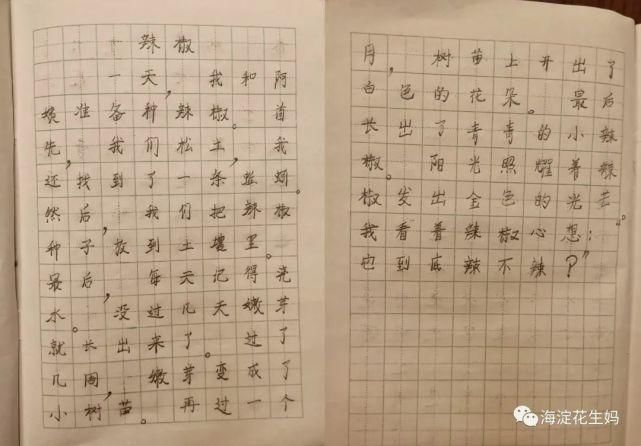 辣椒
一天，我和阿
姨准备种辣椒。首
先，我们松土，我
还找到了一条蚯蚓。
然后我们把辣椒
种子放到土壤里。
最后，每天记得浇
水。没过几天嫩芽
就长出来了。过了
几周，嫩芽变成了
小树苗。再过一个
月，树苗上开出了
白色的花朵。最后
长出了青青的小辣
椒。阳光照耀着辣
椒发出金色的光芒。
我看着辣椒心想：“
它到底辣不辣？”
海淀花生妈